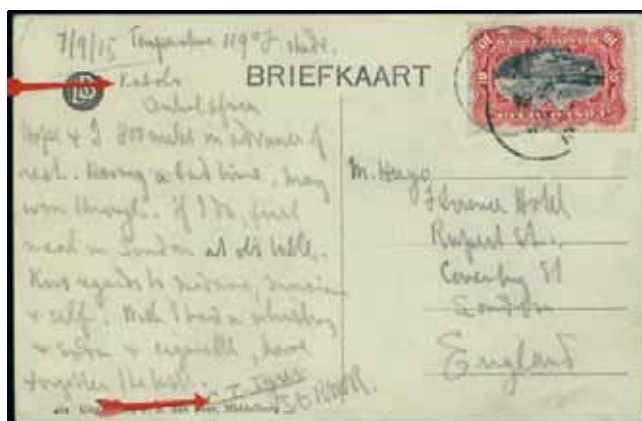 7/9/15 Temperature 119° F shade.
Kabalo
Central Africa
BRIEFKAART
Hope & I 800 miles in advance of
rest. Having a bad time, may
worm through. If I do, first
meal in London at old table.
Kind regards to Madame,
& self. Wish I had a whiskey
& soda & cigarette, have
forgotten the taste.
R.N.V.R.
M. Hugo
Florence Hotel
Rupert St.
Coventry St
London
England